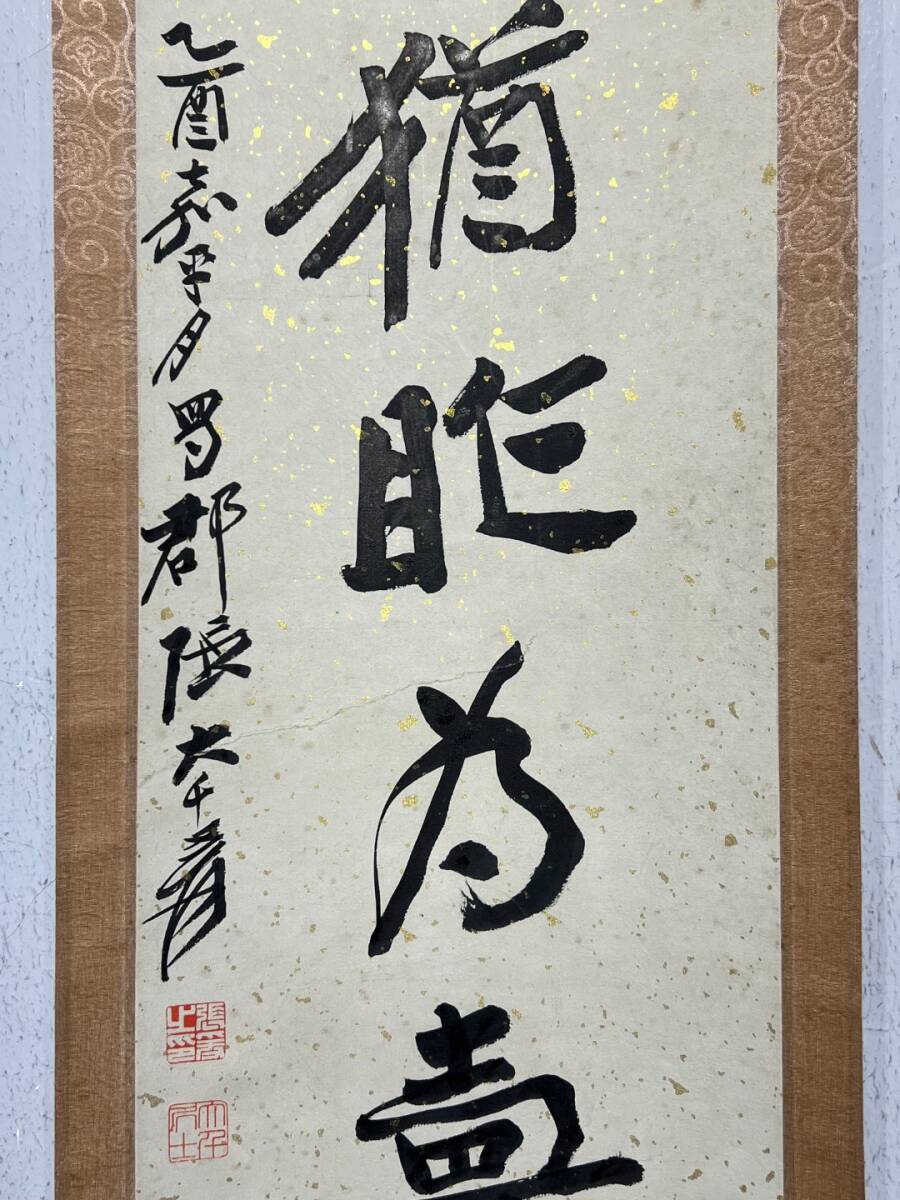 猶
為
乙酉嘉平月蜀郡張大千爰
張爰之印
大千居士